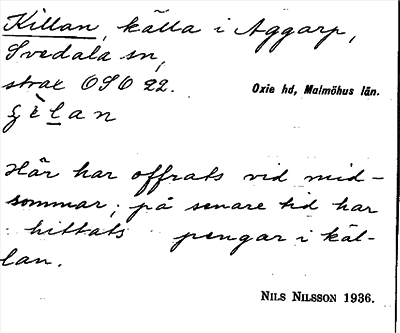 Killan, källa i Aggarp,
Svedala sn,
strax OSO 22.
Oxie hd, Malmöhus län.
çèlan
Här har offrats vid mid-
sommar; på senare tid har
hittats pengar i käl-
lan.
NILS NILSSON 1936.